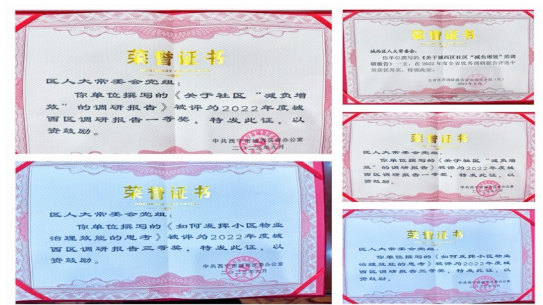 荣誉证书
区人大常委会党组:
你单位撰写的《关于社区“减负增
效”的调研报告》被评为2022年度城
西区调研报告一等奖,特发此证,以
资鼓励。
中共西宁市城西区委办公室
荣誉证书
区人大常委会党组:
你单位撰写的《如何发挥小区物业
治理效能的思考》被评为2022年度城
西区调研报告三等奖,特发此证,以
资鼓励。
中共西宁市城西区委办公室
荣誉证书
城西区人大常委会:
你单位撰写的《关于城西区社区“减负增效”的调
研报告》一文,在2022年度全省优秀调研报告评选中
荣誉证书
区人大常委会党组:
你单位撰写的《关于社区“减负增
效”的调研报告》被评为2022年度城
西区调研报告一等奖,特发此证,以
资鼓励。
中共西宁市城西区委办公室
荣誉证书
区人大常委会党组:
你单位撰写的《如何发挥小区物业
治理效能的思考》被评为2022年度城
西区调研报告三等奖,特发此证,以
资鼓励。
中共西宁市城西区委办公室